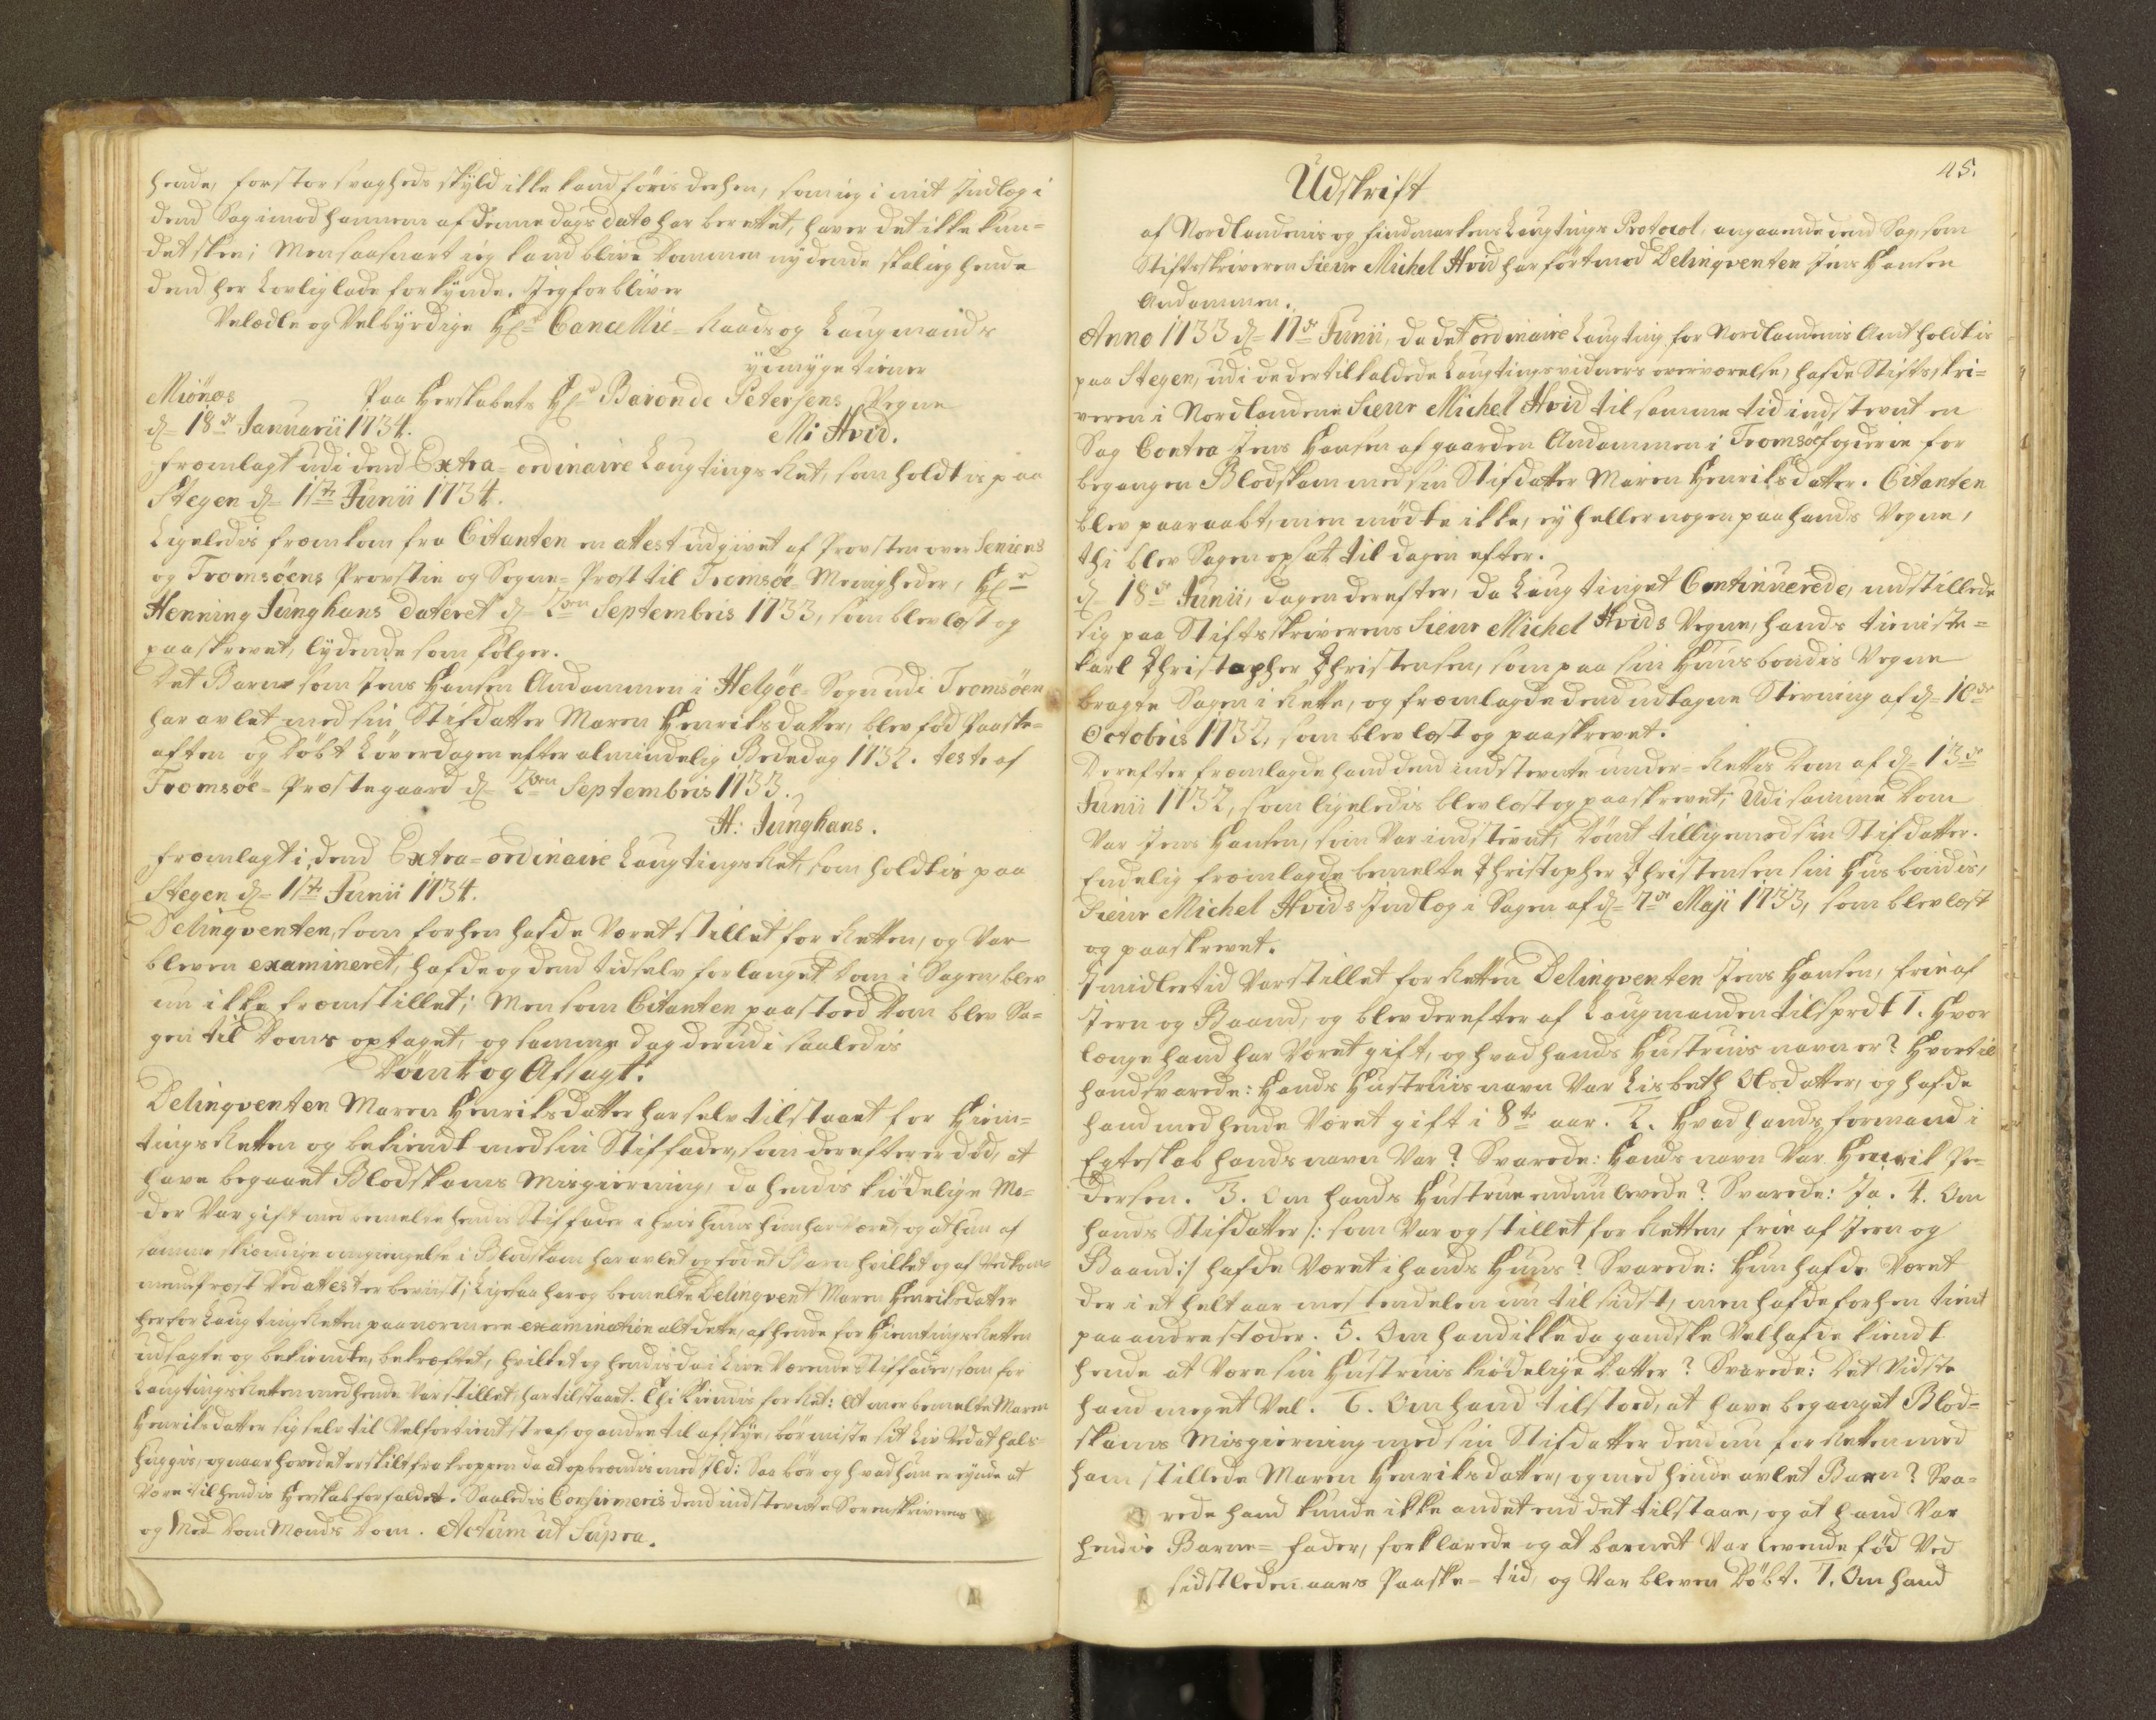 hende, for stor svagheds skyld ikke kand föris derhen, som ieg i mit Indlæg i
dend Sag imod hannem af denne dags dato har berettet, haver det ikke kun-
det skee; Men saasnart ieg kand blive Dommen nydende skal ieg hende
dend her Lovlig lade forkynde. Jeg forbliver
Velædle og Velbyrdige Hr. Cancellie-Raads og Laugmands
ydmyge tiener
Miönæs Paa Herskabets Hr. Baron de Petersens Vegne
d. 18de Januarii 1734. M: Hvid.
fremlagt udi dend Extra-ordinaire Laugtings Ret, som holdtis paa
Stegen d. 1ste Junii 1734.
Ligeledis fremkom fra Citanten en attest udgivet af Provsten over Seniens
og Tromsöens Provstie og Sogne-Præst til Tromsöe Menigheder, Hr.
Henning Junghans dateret d. 2den Septembris 1733, som blev læst og
paaskrevet, lydende som fölger.
Det Barn som Jens Hansen Andammen i Helgöe-Sogn udi Tromsöen
har avlet med sin Stifdatter Maren Henriksdatter, blev föd Paaske-
aften og Döbt Löverdagen efter almindelig Bededag 1732. teste af
Tromsöe-Præstegaard d. 2den Septembris 1733.
H: Junghans.
fremlagt i dend Extra-ordinaire Laugtings Ret, som holdtis paa
Stegen d. 1ste Junii 1734.
Delinqventen, som forhen hafde Været stillet for Retten, og Var
bleven examineret, hafde og dend tid selv forlanget Dom i Sagen, blev
nu ikke fremstillet; Men som Citanten paastoed Dom blev Sa-
gen til Doms optaget, og samme dag derudi saaledis
Dömt og Afsagt.
Delinqventen Maren Henriksdatter har selv tilstaaet for Hiem-
tings Retten og bekiendt med sin Stiffader, som derefter er död, at
have begaaet Blodskams Misgierning, da hendis kiödelige Mo-
der Var gift med bemelte hendis Stiffader i hvis huus hun har været, og at hun af
samme skiendige omgiengelse i Blodskam har avlet og föd et Barn hvilket og af Vedkom-
mende Præst Ved attest er beviist; Ligesaa har og bemelte Delinqvent Maren Henriksdatter
her for Laugting Retten paa nærmere examination alt dette, af hende for Hiemtings Retten
udsagte og bekiendte, bekræftet, hvilket og hendis da i Live Værende Stiffader, som for
Laugtings Retten med hende Var stillet, har tilstaaet. Thi kiendis for Ret: At meer bemelte Maren
Henriksdatter sig selv til Velfortient straf og andre til afskye, bör miste sit Liv Ved at hals-
huggis, og naar hovedet er skilt fra kroppen da at opbrendis med Ild: Saa bör og hvad hun er eyende at
Være til hendis Herskab forfaldet. Saaledis Confirmeris dend indstevnte Sorenskriverens
og Med Dom Mænds Dom. Actum ut Supra.
45.
Udskrift
af Nordlandenis og findmarkens Laugtings Protocol, angaaende dend Sag, som
Stiftsskriveren Sieur Michel Hvid har fört mod Delinqventen Jens Hansen
Andammen.
Anno 1733 d. 17de Junii, da det ordinaire Laugting for Nordlandenis Amt holdtis
paa Stegen, udi de dertil kaldede Laugtingsvidners overværelse, hafde Stiftsskri-
veren i Nordlandene Sieur Michel Hvid til samme tid indstevnt en
Sag Contra Jens Hansen af gaarden Andammen i Tromsöe fogderie for
begangen Blodskam med sin Stifdatter Maren Henriksdatter. Citanten
blev paaraabt, men mödte ikke, ey heller nogen paa hands Vegne,
thi blev Sagen opsat til dagen efter.
d. 18de Junii, dagen derefter, da Laugtinget Continuerede, indstillede
sig paa Stiftsskriverens Sieur Michel Hvids Vegne, hands tieniste-
karl Christopher Christensen, som paa sin Huusbondis Vegne
bragte Sagen i Rette, og fremlagde dend udtagne Stevning af d. 10de
Octobris 1732, som blev læst og paaskrevet.
Derefter fremlagde hand dend indstevnte under-Rettis Dom af d. 13de
Junii 1732, som ligeledis blev læst og paaskrevet; Udi samme Dom
Var Jens Hansen, som Var indstevnt, Dömt tillige med sin Stifdatter.
Endelig fremlagde bemelte Christopher Christensen sin Husbondis,
Sieur Michel Hvids Indlæg i Sagen af d. 7de Maji 1733, som blev læst
og paaskrevet.
Imidlertid Var stillet for Retten Delinqventen Jens Hansen, frie af
Jern og Baand, og blev derefter af Laugmanden tilspordt 1. Hvor
længe hand har Været gift, og hvad hands Hustruis navn er? Hvortil
hand svarede: Hands Hustruis navn Var Lisbeth Olsdatter, og hafde
hand med hende Været gift i 8te aar. 2. Hvad hands formand i
Egteskab hands navn Var? Svarede: Hands navn Var Henrik Pe-
dersen. 3. Om hands Hustrue endnu levede? Svarede: Ja. 4. Om
hands Stifdatter /: som Var og stillet for Retten, frie af Jern og
Baand :/ hafde Været i hands Huus? Svarede: Hun hafde Været
der i et halt aar mestendelen nu til sidst, men hafde forhen tient
paa andre stæder. 5. Om hand ikke da gandske Vel hafde kiendt
hende at Være sin Hustruis kiödelige Datter? Svarede: Det Vidste
hand meget Vel. 6. Om hand tilstoed, at have begaaet Blod-
skams Misgierning med sin Stifdatter dend nu for Retten med
ham stillede Maren Henriksdatter, og med hende avlet Barn? Sva-
rede hand kunde ikke andet end det tilstaae, og at hand Var
hendis Barne-fader, forklarede og at barnet Var levende föd Ved
sidstleden aars Paaske-tid, og Var bleven Döbt. 7. Om hand